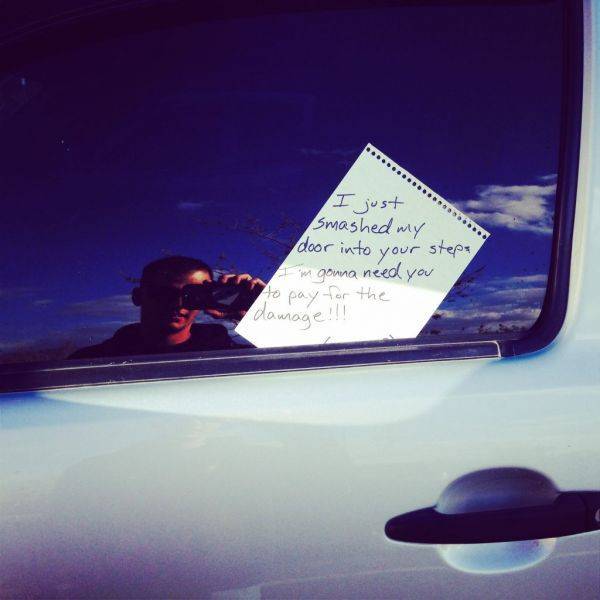 I just
smashed my
door into your steps
I'm gonna need you
to pay for the
damage!!!